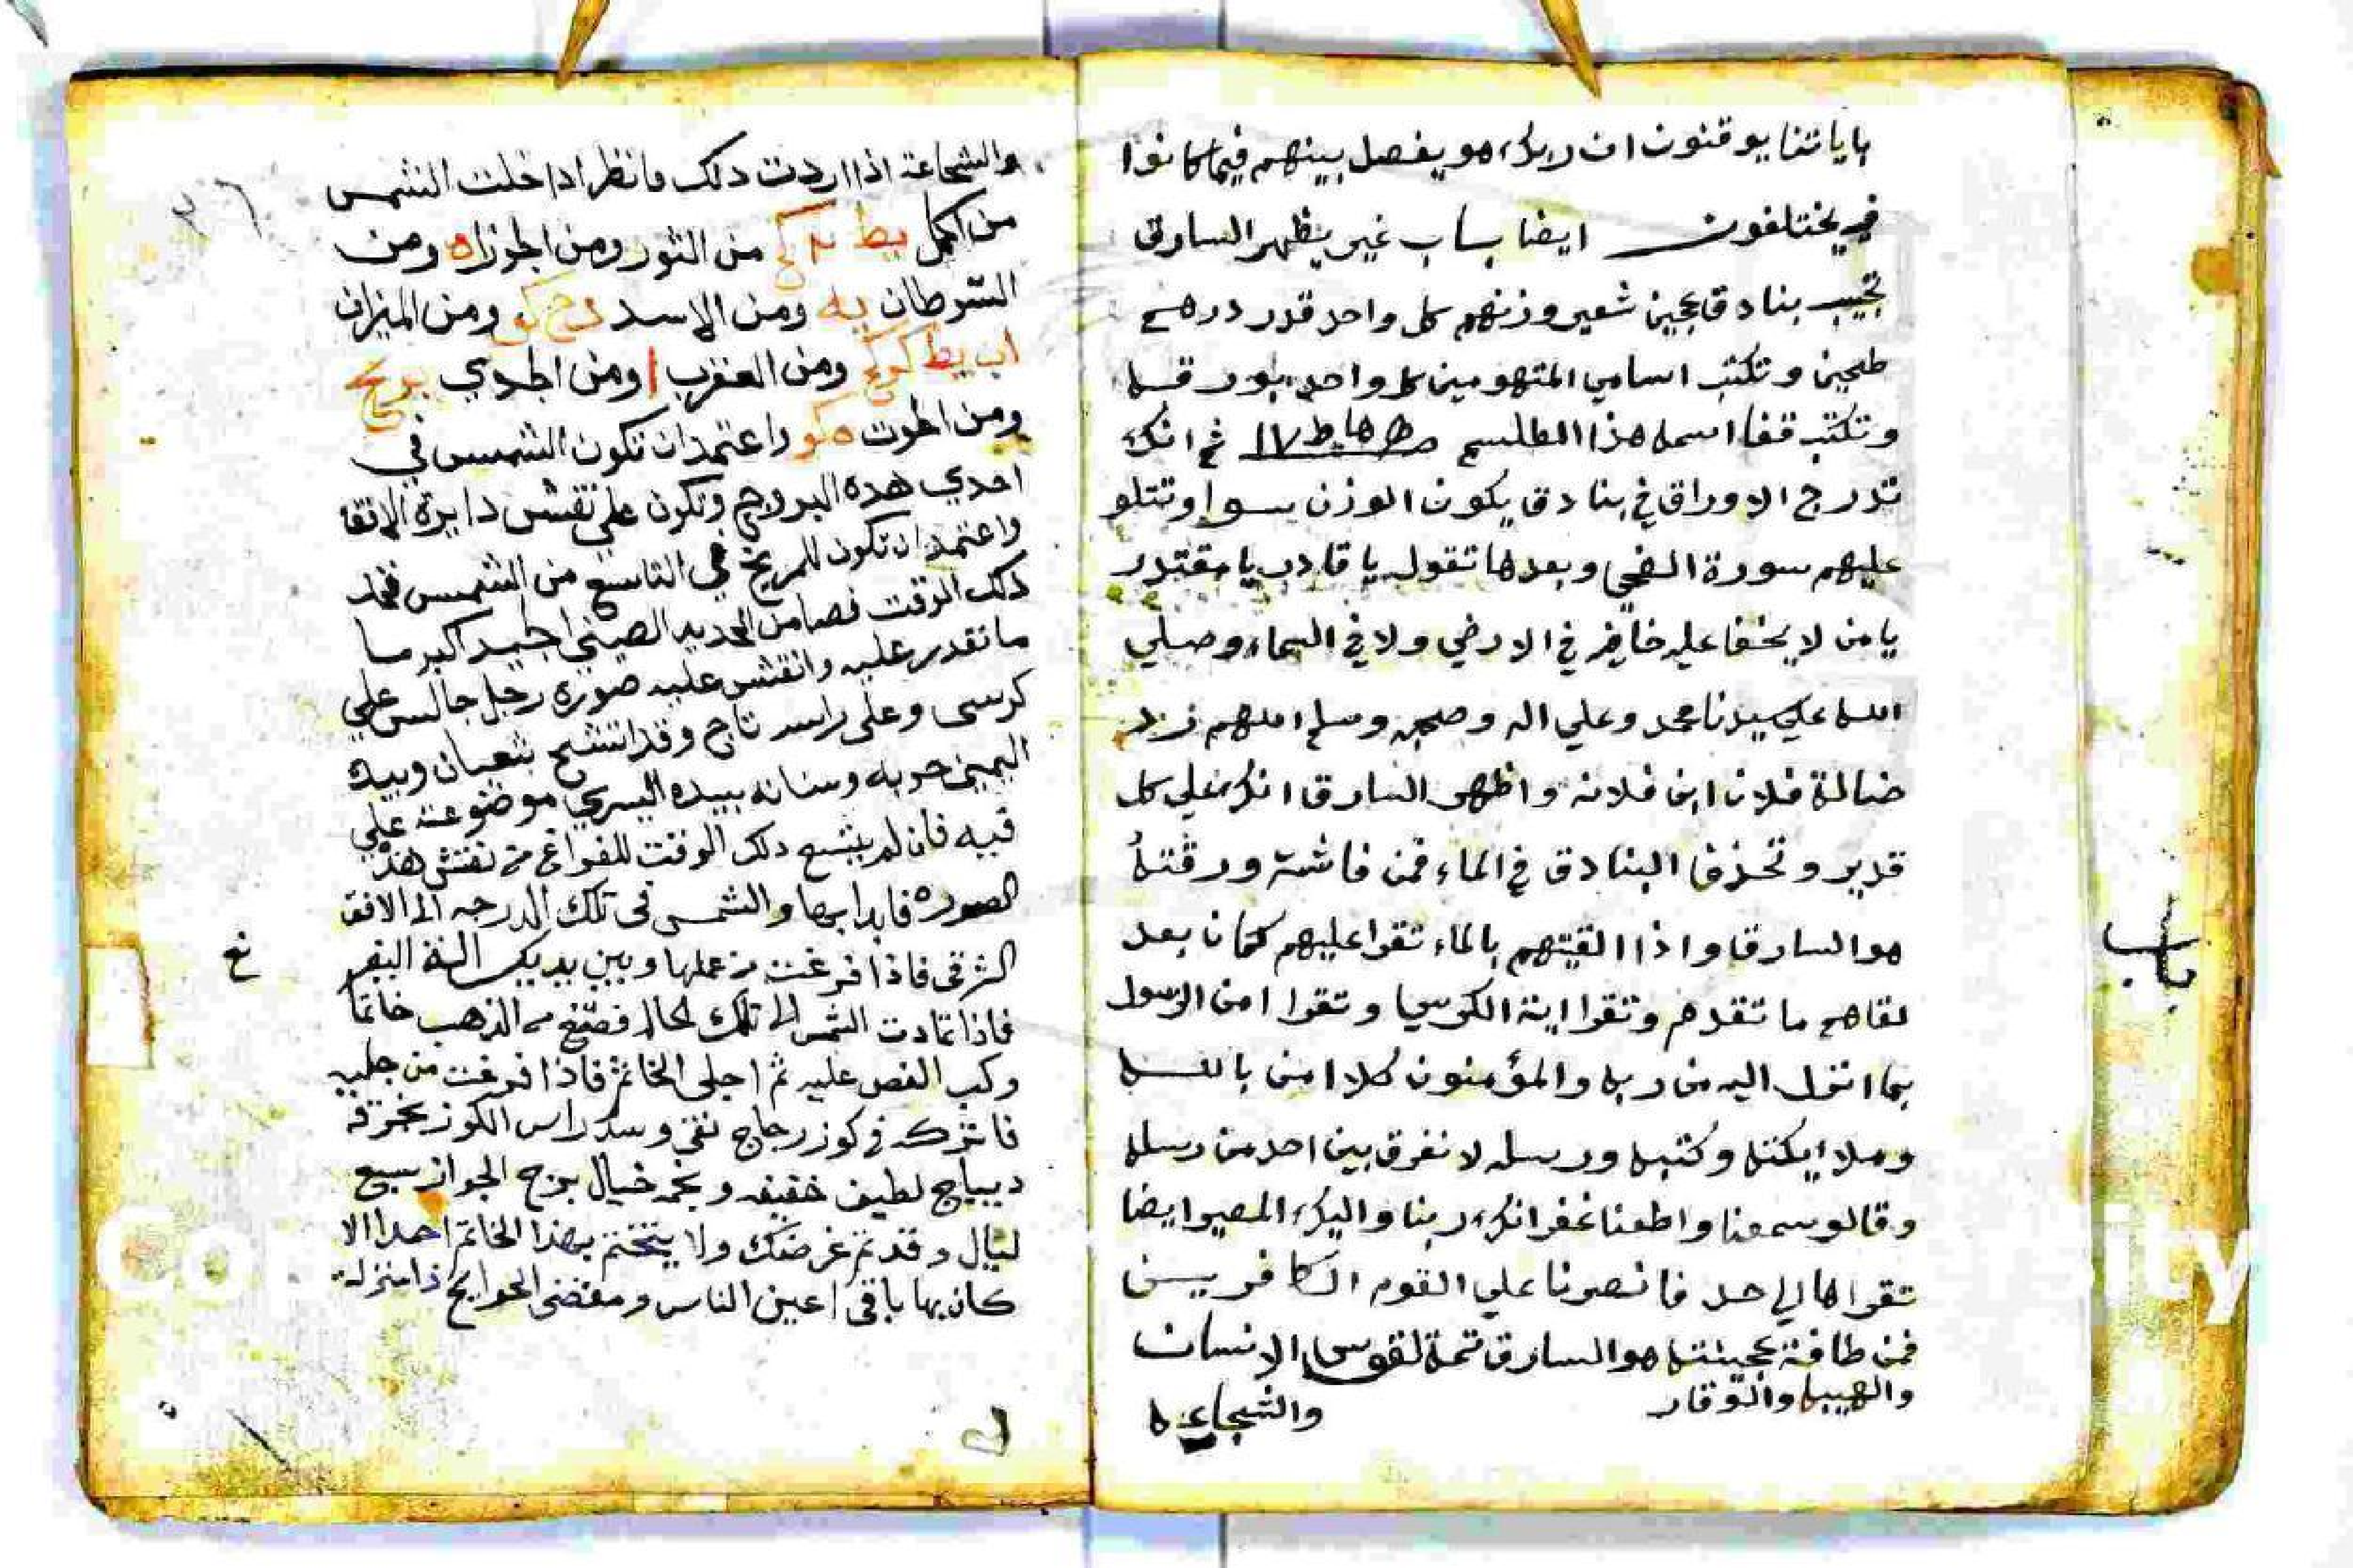 باياتنا يوقنون ان ربك هو يفصل بينهم فيما كانوا
فيه يختلفون ايضا باب غيره يظهر السارق
تجيب بنادق عجين شعير وزنهم كل واحد قدر درهم
طحين وتكتب اسامي المتهومين كل واحد بورقه
وتكتب قفا اسمه هذا الطلسم ثم انك
تدرج الاوراق في بنادق يكون الوزن سوا وتتلو
عليهم سورة الضحي وبعدها تقول يا قادر يا مقتدر
يا من لا يخفا عليه خافيه في الارض ولا في السماء وصلي
الله علي سيدنا محمد وعلي اله وصحبه وسلم اللهم رد
ضالة فلان ابن فلانه واظهر السارق انك علي كل
قدير وتحذف البنادق في الماء فمن فاشت ورقته
هو السارق واذا القيتهم بالماء تقرا عليهم كمان بعد
لقاهم ما تقدم وتقرا اية الكرسي وتقرا امن الرسول
بما انزل اليه من ربه والمؤمنون كلا امن بالله
وملايكته وكتبه ورسله لا نفرق بين احد من رسله
وقالو سمعنا واطعنا غفرانك ربنا واليك المصير ايضا
تقراها الي حد فانصرنا علي القوم الكافرين
فمن طافة عجينته هو السارق تمة لقوس الانسان
والهيبه والوقار
والشجاعه
باب
٣٦
والشجاعة اذا اردت دلك فانظر ادا خلت الشمس
من الحمل يط من الثور ومن الجوزا ه ومن
السرطان يه ومن الاسد ومن الميزان
اب يط ومن العقرب ا ومن الجدي
ومن الحوت واعتمد ان تكون الشمس في
احدي هده البروج وتكون علي نقش دايرة الافق
واعتمد ان تكون المريخ في التاسع من الشمس فخد
دلك الوقت فصا من الحديد الصيني الجيد اكبر ما
ما تقدر عليه وانقش عليه صورة رجل جالس علي
كرسي وعلي راسه تاج وقد اتشح بثعبان وبيده
اليمين حربه وسنانه بيده اليسري موضوعة علي
فيه فان لم يتسع دلك الوقت للفراغ من نقش هذه
الصوره فابدا بها والشمس في تلك الدرجه الى الافق
الشرقي فاذا فرغت من عملها وبين يديك
فاذا عادت الشمس الى تلك الحاله فصغ من الذهب خاتما
وركب الفص عليه ثم اجلي الخاتم فاذا فرغت من جليه
فاتركه في كوز زجاج نقي وسد راس الكوز بخرقة
ديباج لطيف خفيفه وبخره خيال برج الجوزا سبع
ليال وقد تم غرضك ولا يتختم بهذا الخاتم احدا الا
كان بها باقي اعين الناس ومقضي الحوايج ذا منزله